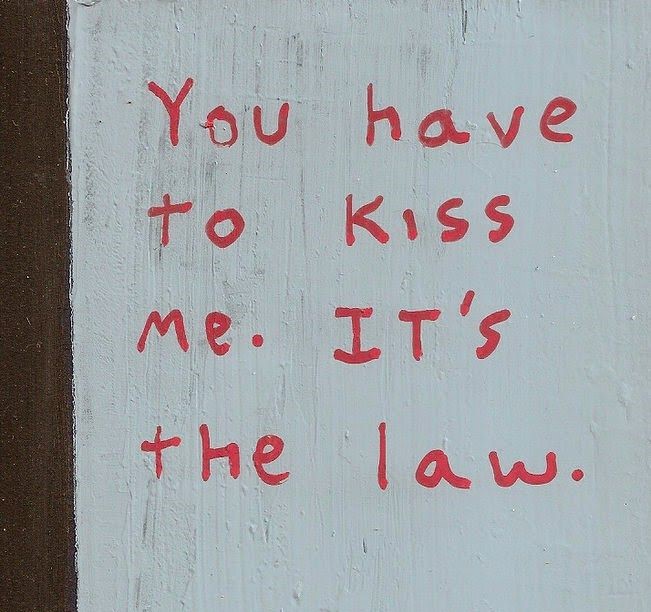 You have
to Kiss
Me. IT's
the law.